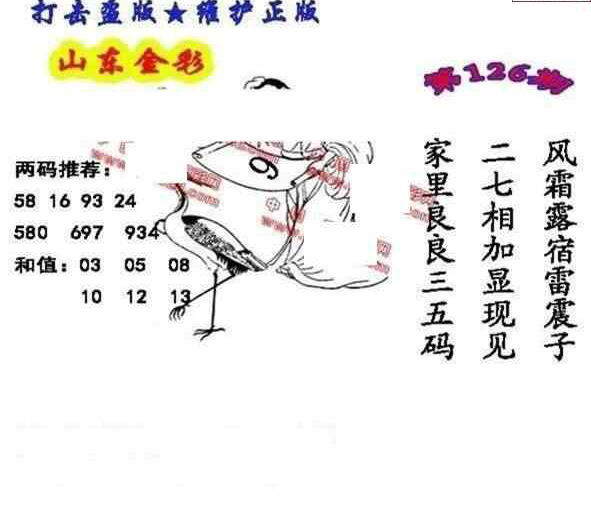 打击盗版★维护正版
山东金彩
第126期
两码推荐：
58 16 93 24
580 697 934
和值：03 05 08
10 12 13
9
风霜露宿雷震子
二七相加显现见
家里良良三五码